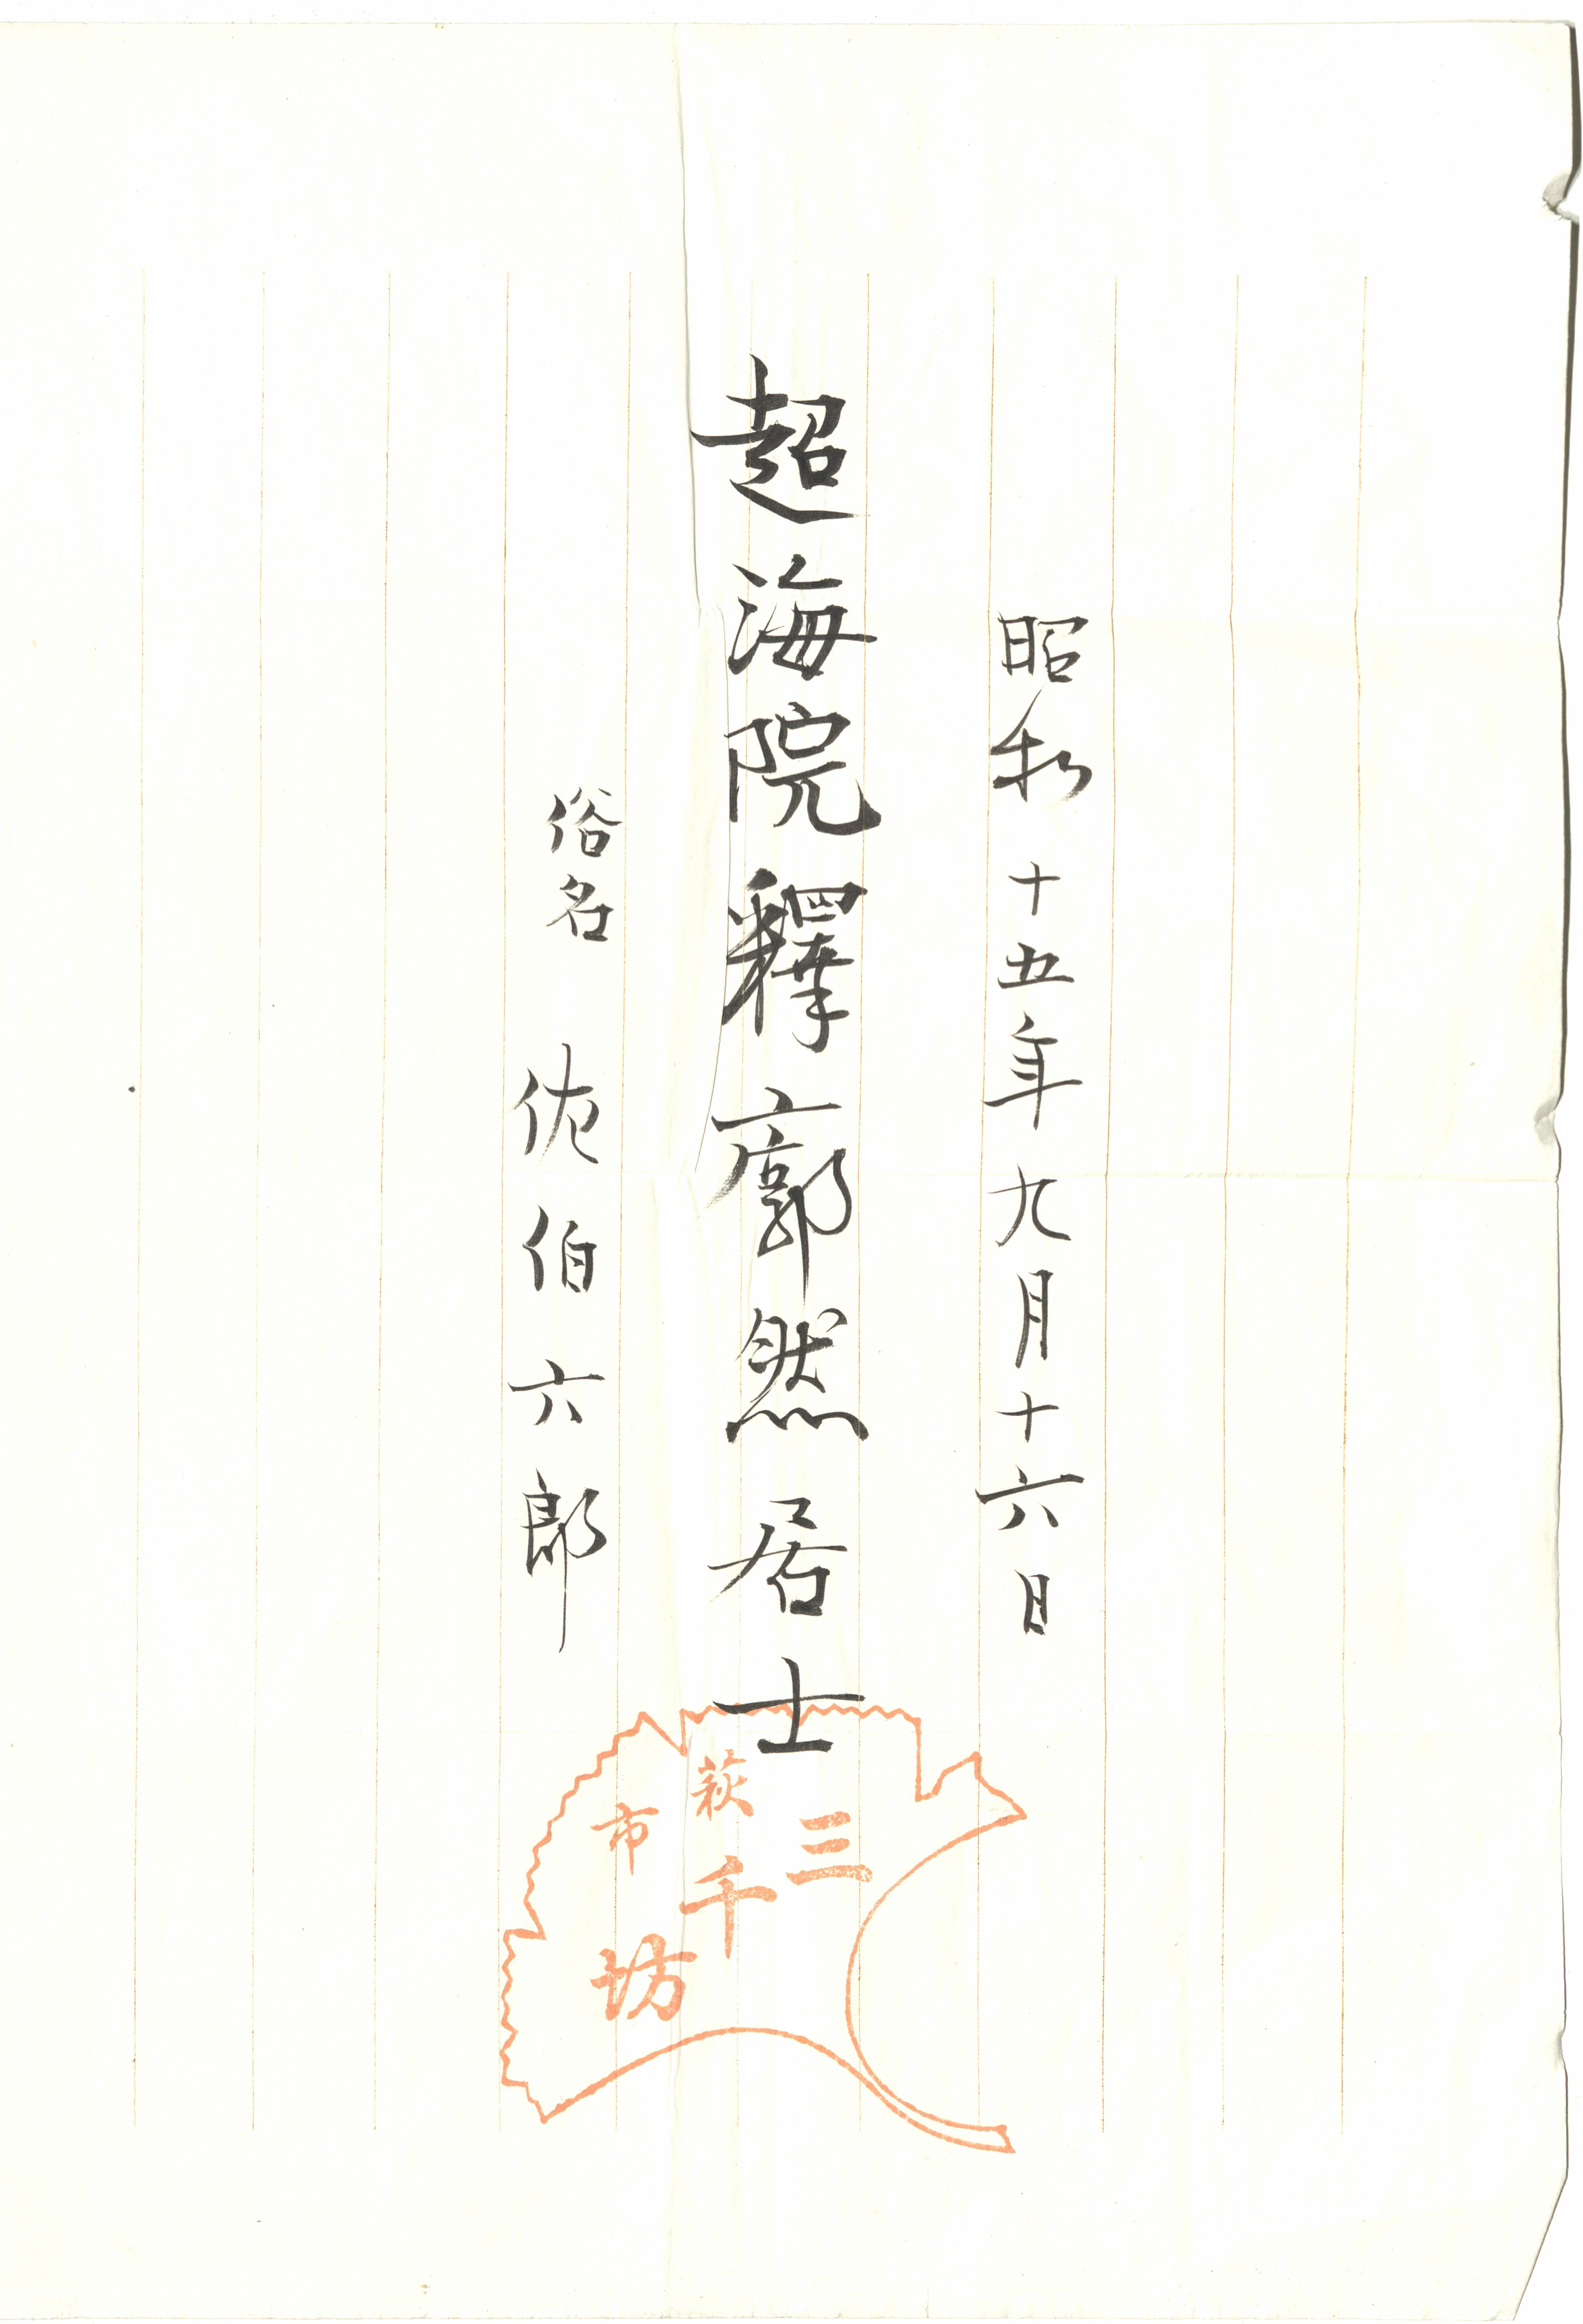 昭和十五年九月十六日
超海院釋廓然居士
俗名 佐伯六郎
萩市
三千坊